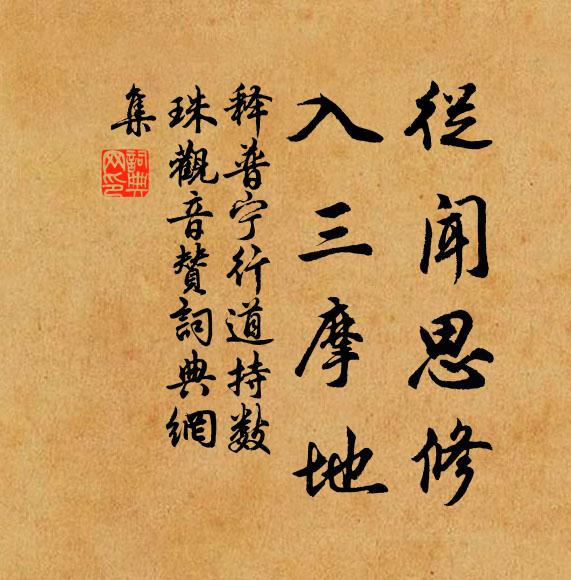 從聞思修
入三摩地
释普宁行道持数
珠觀音贊詞典網
集
詞典網印